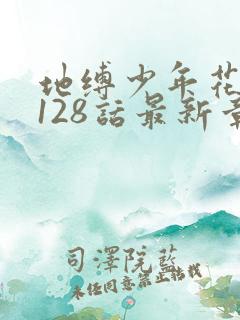 地缚少年花
128話最新章
司澤院藍
未经同意禁止转载